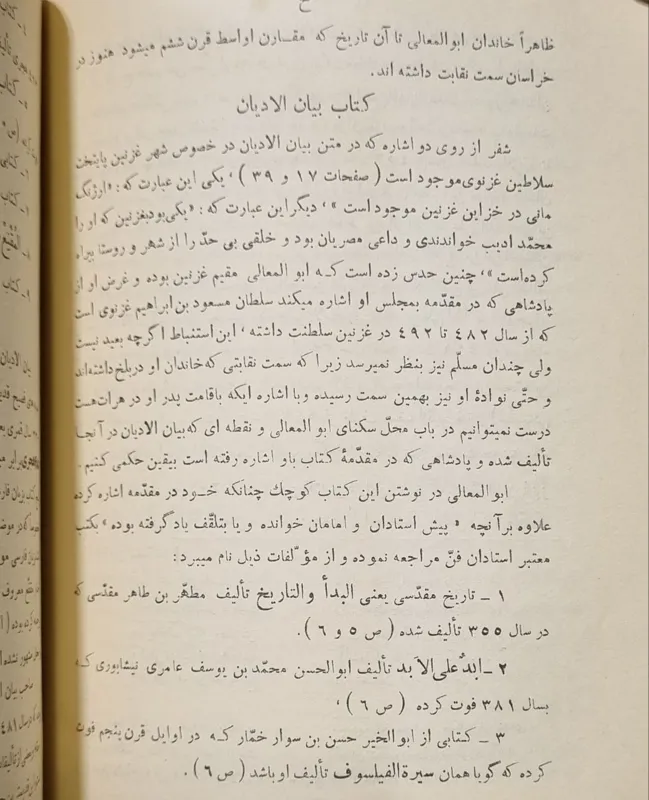 ح
ظاهراً خاندان ابوالمعالی تا آن تاریخ که مقارن اواسط قرن ششم میشود هنوز در
خراسان سمت نقابت داشته اند.
کتاب بیان الادیان
شفر از روی دو اشاره که در متن بیان الادیان در خصوص شهر غزنین پایتخت
سلاطین غزنوی موجود است (صفحات ۱۷ و ۳۹)، یکی این عبارت که: «ارژنگ
مانی در خزاین غزنین موجود است»، دیگر این عبارت که: «یکی بود بغزنین که او را
محمّد ادیب خواندندی و داعی مصریان بود و خلقی بی حدّ را از شهر و روستا بیراه
کرده است»، چنین حدس زده است که ابو المعالی مقیم غزنین بوده و غرض او از
پادشاهی که در مقدّمه بمجلس او اشاره میکند سلطان مسعود بن ابراهیم غزنوی است
که از سال ۴۸۲ تا ۴۹۲ در غزنین سلطنت داشته، این استنباط اگرچه بعید نیست
ولی چندان مسلّم نیز بنظر نمیرسد زیرا که سمت نقابتی که خاندان او در بلخ داشته‌اند
و حتّی نوادهٔ او نیز بهمین سمت رسیده و با اشاره ایکه باقامت پدر او در هرات هست
درست نمیتوانیم در باب محلّ سکنای ابو المعالی و نقطه ای که بیان الادیان در آنجا
تألیف شده و پادشاهی که در مقدّمهٔ کتاب باو اشاره رفته است بیقین حکمی کنیم.
ابو المعالی در نوشتن این کتاب کوچك چنانکه خود در مقدمه اشاره کرده
علاوه بر آنچه «پیش استادان و امامان خوانده و یا بتلقّف یاد گرفته بوده» بکتب
معتبر استادان فنّ مراجعه نموده و از مؤلّفات ذیل نام میبرد:
۱ ــ تاریخ مقدّسی یعنی البدأ والتاریخ تألیف مطهّر بن طاهر مقدّسی که
در سال ۳۵۵ تألیف شده (ص ۵ و ۶).
۲ ــ ابدُ علی الاَبد تألیف ابوالحسن محمّد بن یوسف عامری نیشابوری که
بسال ۳۸۱ فوت کرده (ص ۶)،
۳ ــ کتابی از ابو الخیر حسن بن سوار خمّار که در اوایل قرن پنجم فوت
کرده که گویا همان سیرة الفیلسوف تألیف او باشد (ص ۶).